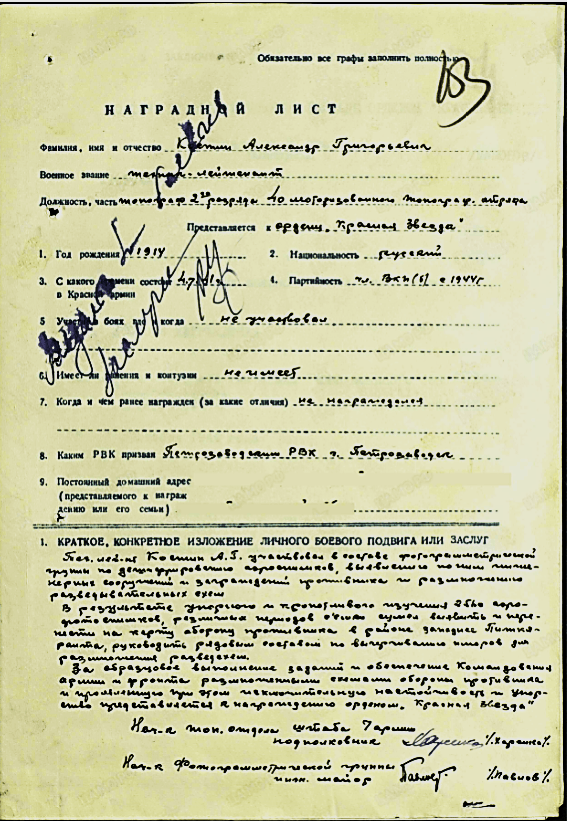 Обязательно все графы заполнить полностью
НАГРАДНОЙ ЛИСТ
Фамилия, имя и отчество Костин Александр Григорьевич
Военное звание техник-лейтенант
Должность, часть топограф 2го разряда 40 моторизованного топограф. отряда
Представляется к ордену „Красная Звезда"
1. Год рождения 1914 2. Национальность русский
3. С какого времени состоит
в Красной армии
4. Партийность чл. ВКП(б) с 1944г
5 Участие в боях где и когда не участвовал
6. Имеет ли ранения и контузии не имеет
7. Когда и чем ранее награжден (за какие отличия) не награждался
8. Каким РВК призван Петрозаводским РВК г. Петрозаводск
9. Постоянный домашний адрес
(представляемого к награж
дению или его семьи)
1. КРАТКОЕ, КОНКРЕТНОЕ ИЗЛОЖЕНИЕ ЛИЧНОГО БОЕВОГО ПОДВИГА ИЛИ ЗАСЛУГ
Тех. лей-нт Костин А.Г. участвовал в составе фотограмметрической
группы по дешифрированию аэроснимков, выявлению по ним инже-
нерных сооружений и заграждений противника и размножению
разведывательных схем
В результате упорного и кропотливого изучения аэро-
фотоснимков, различных периодов съёмки сумел выявить и пере-
нести на карту оборону противника в районе западнее Питкя-
ранта, руководить рядовым составом по вычерчиванию для
размножения разведсхем.
За образцовое выполнение заданий и обеспечение Командования
армии и фронта размноженными схемами обороны противника
и проявленную при этом исключительную настойчивость и упор-
ство представляется к награждению орденом „Красная Звезда"
Нач-к топ. отдела штаба 7 армии
подполковник /Харенко/
Нач-к Фотограмметрической группы
инж. майор /Павлов/